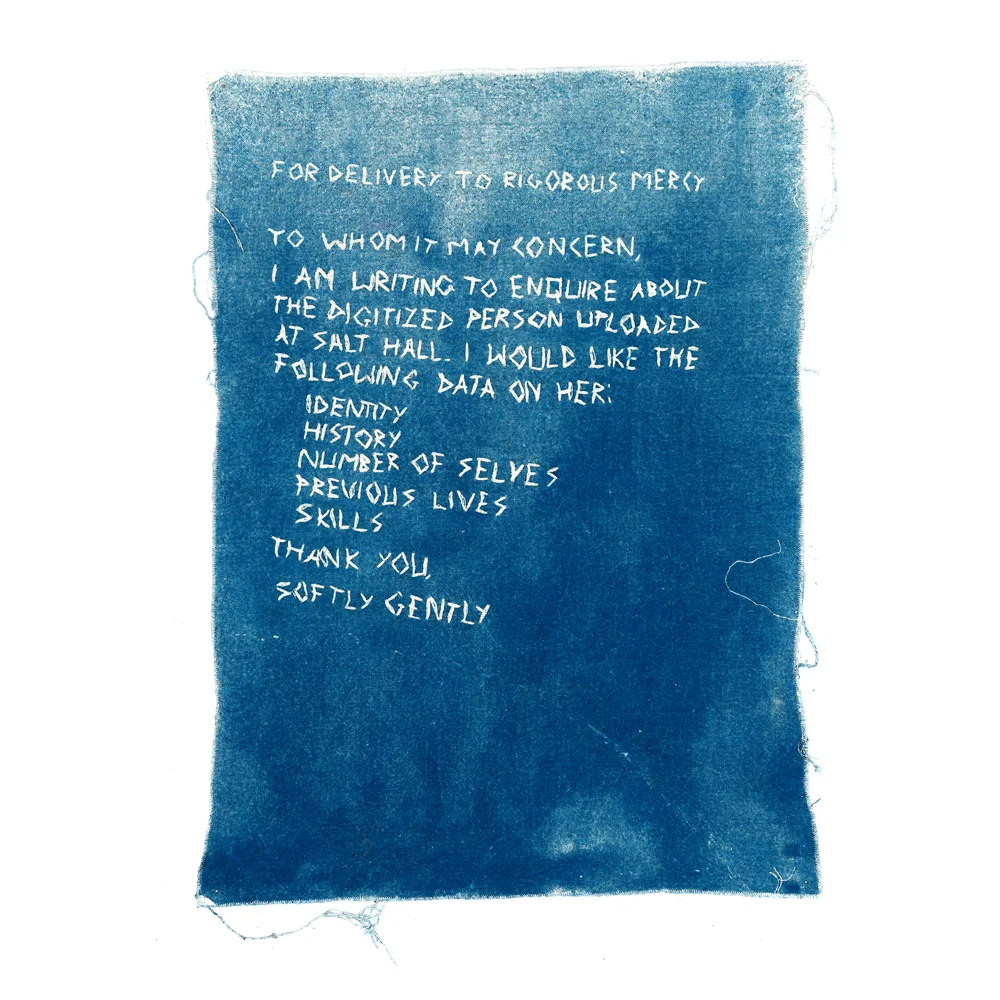 FOR DELIVERY TO RIGOROUS MERCY
TO WHOM IT MAY CONCERN,
I AM WRITING TO ENQUIRE ABOUT
THE DIGITIZED PERSON UPLOADED
AT SALT HALL. I WOULD LIKE THE
FOLLOWING DATA ON HER:
IDENTITY
HISTORY
NUMBER OF SELVES
PREVIOUS LIVES
SKILLS
THANK YOU,
SOFTLY GENTLY